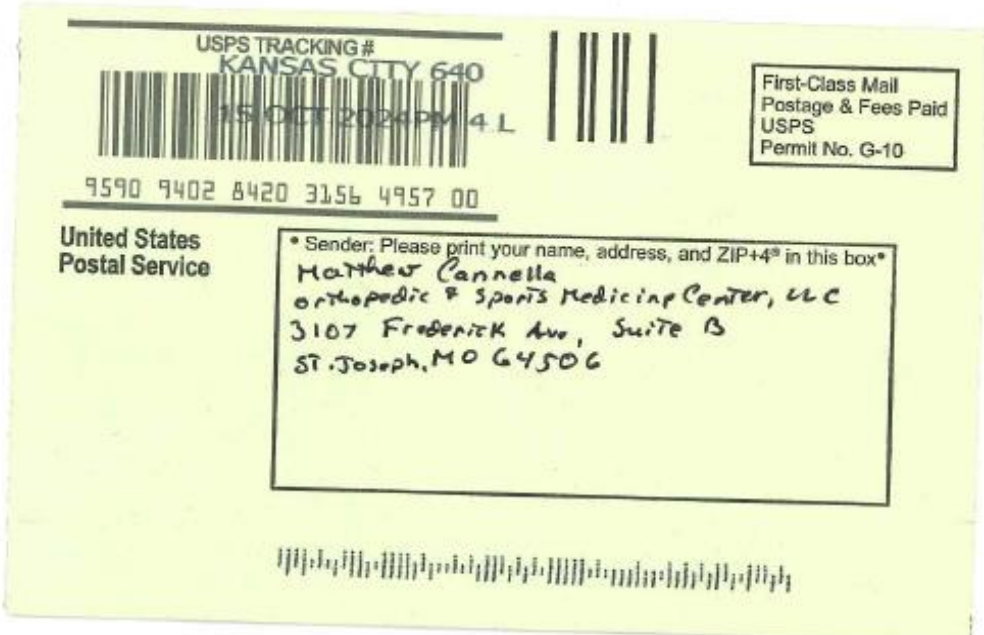 USPS TRACKING #
KANSAS CITY 640
15 OCT 2024 PM 4 L
9590 9402 8420 3156 4957 00
First-Class Mail
Postage & Fees Paid
USPS
Permit No. G-10
United States
Postal Service
• Sender: Please print your name, address, and ZIP+4® in this box•
Matthew Cannella
Orthopedic & Sports Medicine Center, LLC
3107 Frederick Ave, Suite B
St. Joseph, MO 64506